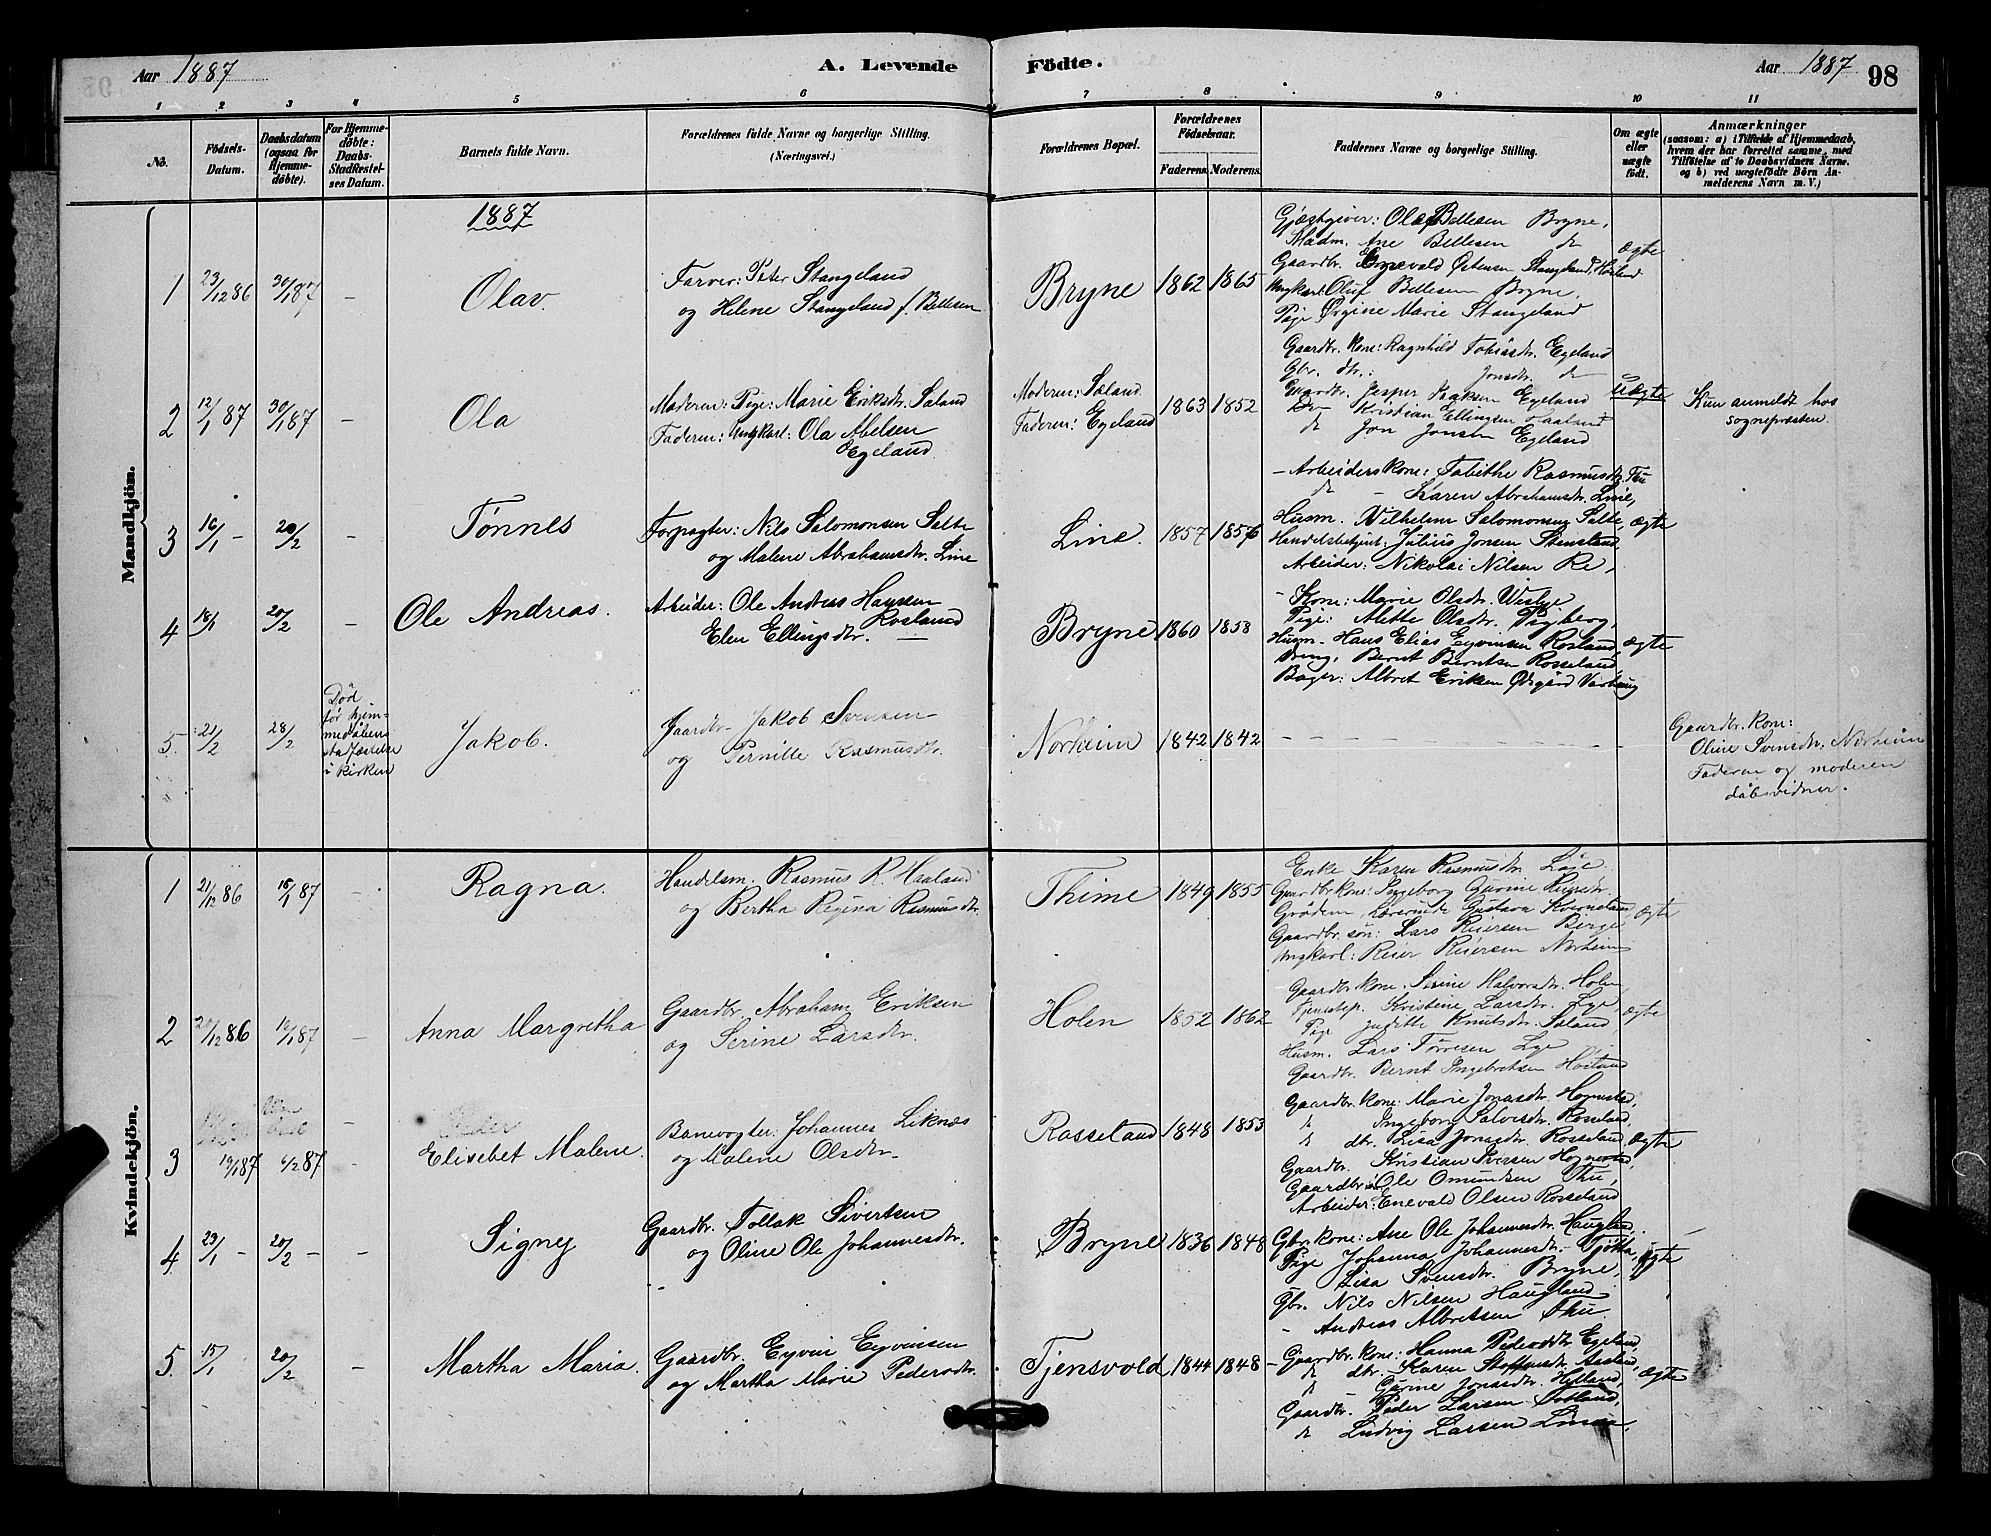 Aar 1887
A. Levende
Födte.
Aar 1887
98
1 2 3 4 5 6 7 8 9 10 11
No.
Födsels-
Datum.
Daabsdatum
(ogsaa for
Hjemme-
döbte).
For Hjemme-
döbte:
Daabs-
Stadfæstel-
ses Datum.
Barnets fulde Navn.
Forældrenes fulde Navne og borgerlige Stilling.
(Næringsvei.)
Forældrenes Bopæl.
Forældrenes
Födselsaar.
Faderens. Moderens.
Faddernes Navne og borgerlige Stilling.
Om ægte
eller
uægte
födt.
Anmærkninger
(saasom: a) i Tilfælde af Hjemmedaab,
hvem der har forrettet samme, med
Tilföielse af to Daabsvidners Navne.
og b) ved uægtefödte Börn An-
melderens Navn m. V.)
Mandkjön.
1887
1
23/12 86
30/1 87
-
Olav.
Farver: Peter Stangeland
og Helene Stangeland f. Bellesen
Bryne
1862
1865
Gjæstgiver: Olaf Bellesen Bryne,
Madm. Ane Bellesen do
Gaardbr. Enevald Østensen Stangeland,
Ungkarl Oluf Bellesen Bryne,
Pige Ørgine Marie Stangeland
ægte
2
12/1 87
30/1 87
-
Ola
Moderen: Pige: Marie Eriksdtr. Saland
Faderen: Ungkarl: Ola Abelsen
Egeland
Moderen: Sæland
Faderen: Egeland
1863
1852
Gaardbr. kone: Ragnhild Tobiasdtr. Egeland
Gbr. dtr.: Jonsdtr. do
Gaardbr. Jesper Isaksen Egeland
Do Kristian Ellingsen Haaland
do Jon Jonsen Egeland
Uægte
Kun anmeldt hos
sognepræsten.
3
16/1 -
20/2
-
Tønnes
Forpagter: Nils Salomonsen Salte
og Malene Abrahamsdtr. Line
Line.
1857
1856
- Arbeiders kone: Tabithe Rasmusdtr. Tu
do - Karen Abrahamsdtr. Line,
Husm. Vilhelm Salomonsen Salte,
Handelsbetjent: Julius Jonsen Stensland,
Arbeider: Nikolai Nilsen Re,
ægte
4
18/1
20/2
-
Ole Andreas.
Arbeider: Ole Andreas Hansen
Rosland
Elen Ellingsdtr. —
Bryne
1860
1858
- Kone: Marie Olsdtr.
Pige: Alette Olsdtr.
Husm. Hans Elias Eyvinsen Rosland,
Dreng, Bernt Berntsen Rosseland,
Bager: Albret Eriksen Ødegård Varhaug
ægte
5.
21/2
28/2
Død
før hjem-
medåbens
stadfæstelse
i kirken
Jakob.
Gaardbr. Jakob Svensen
og Pernille Rasmusdtr.
Norheim
1842
1842
Gaardbr. kone:
Oline Svensdtr. Norheim
Faderen og moderen
dåbsvidner.
Kvindekjön.
1
21/12 86
15/1 87
-
Ragna.
Handelsm. Rasmus R. Haaland
og Bertha Regina Rasmusdtr.
Thime
1849
1855
Enke Karen Rasmusdtr. Line
Gaardbr kone: Ingeborg Gurine Reiersdtr.
Grødem, Lærerinde Gustava Kverneland,
Gaardbr. søn: Lars Reiersen Birge
Ungkarl: Reier Reiersen Norheim
ægte
2
20/12 86
16/1 87
-
Anna Margretha
Gaardbr. Abraham Eriksen
og Serine Larsdtr.
Holen
1852
1862
Gaardbr. kone. Serine Halvorsdtr. Holen,
Tjenestep. Kristine Larsdtr. Lye,
Pige Judithe Knutsdtr. Saland
Husm. Lars Torresen Lye
Gaardbr. Bernt Ingebretsen Høiland
ægte
3
19/1 87
6/2 87
-
Elisebet Malene.
Banevogter: Johannes Liknæs
og Malene Olsdtr.
Rosseland
1848
1853
Gaardbr. kone: Marie Jonasdtr. Hognestad,
do Ingeborg Salvesdtr. Rosseland,
do dtr. Lisa Jonasdtr. Rosseland,
Gaardbr. Kristian Iversen Hognestad,
Gaardbr. Ole Omundsen Thu,
Arbeider: Enevald Olsen Rosseland
ægte
4.
23/1 -
20/2 -
-
Signy
Gaardbr. Tollak Sivertsen
og Oline Ole Johannesdtr.
Bryne
1836
1848
Gbr. kone: Ane Ole Johannesdtr. Haugland.
Pige Johanna Johannesdtr. Tjøtta,
Lisa Svensdtr. Bryne,
Gbr. Nils Nilsen Haugland
- Andreas Albretsen Thu
ægte
5.
15/1
20/2
-
Martha Maria.
Gaardbr. Eyvin Eyvinsen
og Martha Marie Pedersdtr.
Tjensvold
1844
1848
- Gaardbr. kone: Hanna Pedersdtr. Egeland,
do dtr. Karen Aasland,
do - Gurine Jonasdtr. Hylland,
Gaardbr. Peder Larsen
do Ludvig Larsen
ægte